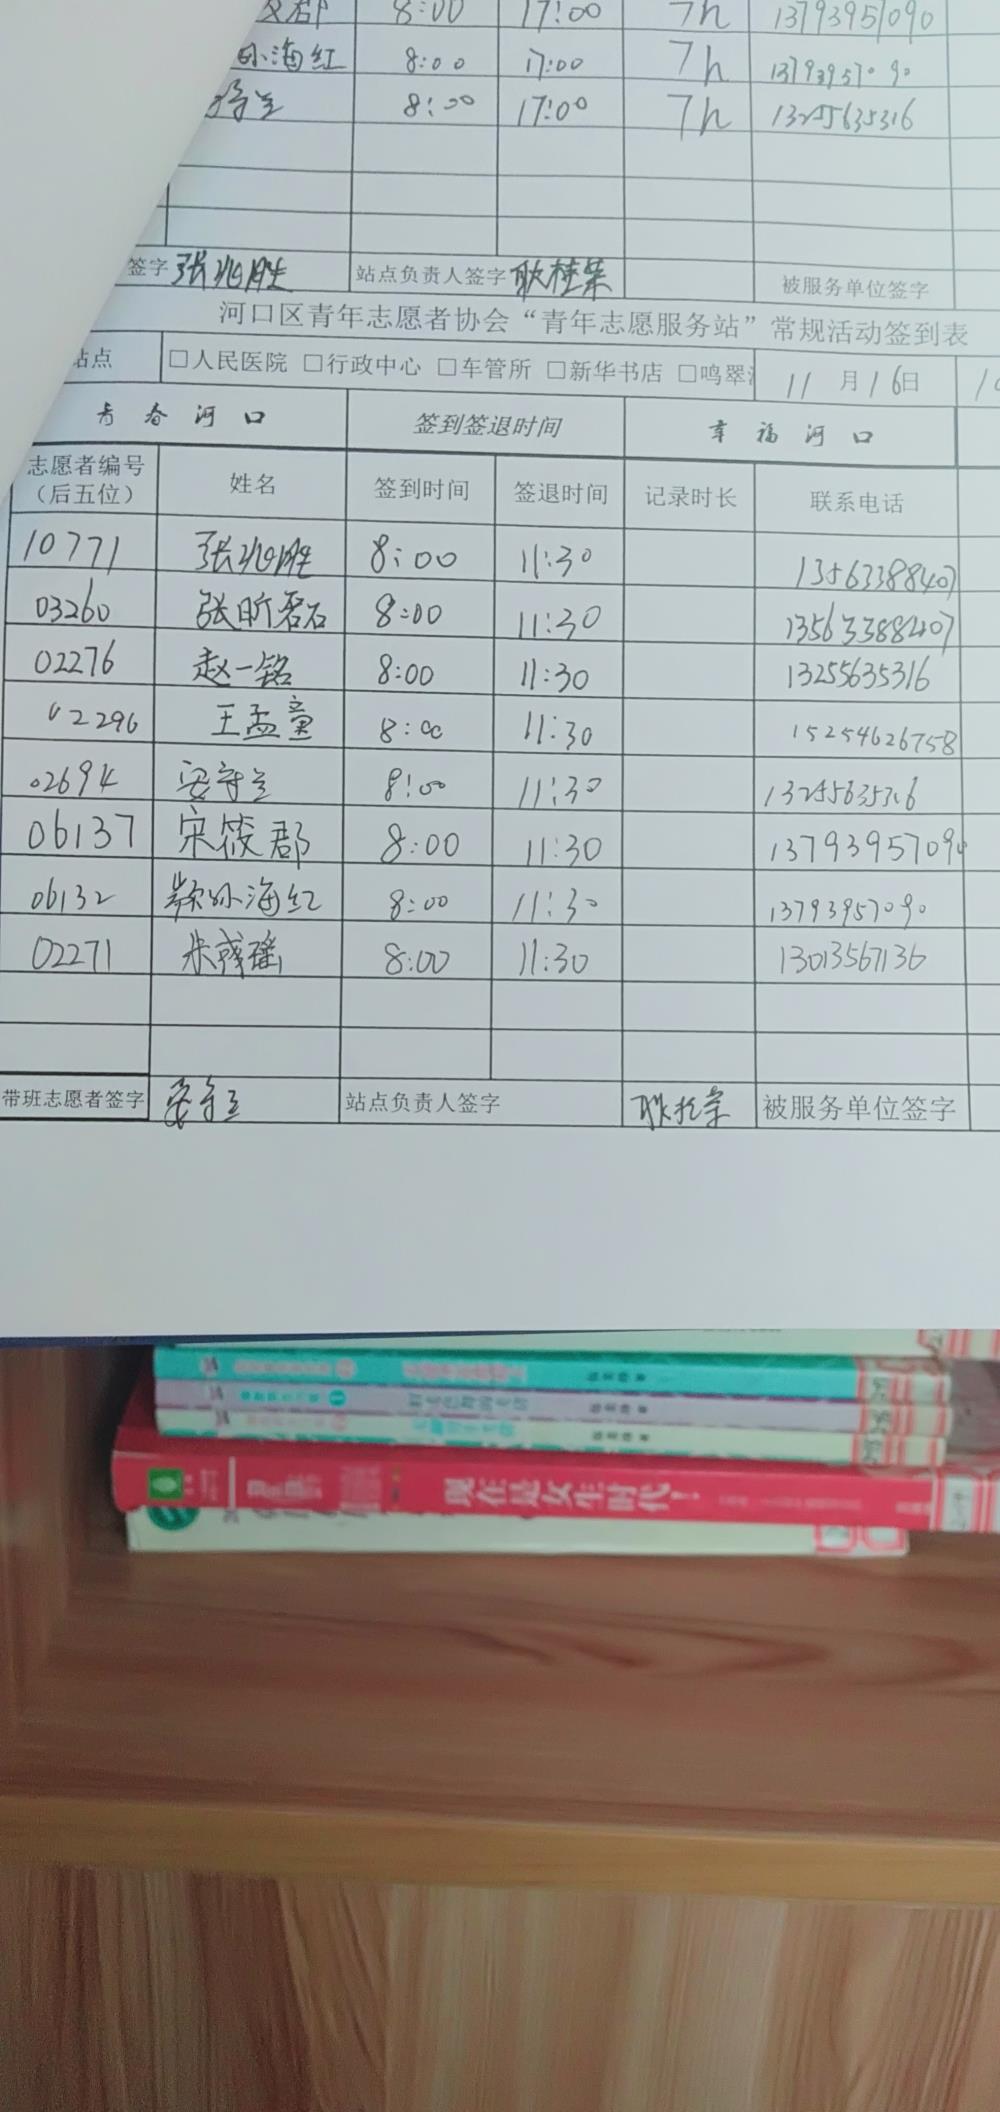 8:00 17:00 7h 13793957090
海红 8:00 17:00 7h 13793957090
8:00 17:00 7h 13255635316
签字 张兆胜 站点负责人签字 耿桂荣 被服务单位签字
河口区青年志愿者协会“青年志愿服务站”常规活动签到表
站点 □人民医院 □行政中心 □车管所 □新华书店 □鸣翠 11月16日
青春河口 签到签退时间 幸福河口
志愿者编号（后五位） 姓名 签到时间 签退时间 记录时长 联系电话
10771 张兆胜 8:00 11:30 13563388407
03260 张昕磊 8:00 11:30 13563388407
02276 赵一铭 8:00 11:30 13255635316
02296 王孟童 8:00 11:30 15254626758
02694 安守兰 8:00 11:30 13255635316
06137 宋筱郡 8:00 11:30 13793957090
06132 海红 8:00 11:30 13793957090
02271 朱彧瑶 8:00 11:30 13013567136
带班志愿者签字 安守兰 站点负责人签字 耿桂荣 被服务单位签字
现在是女生时代!